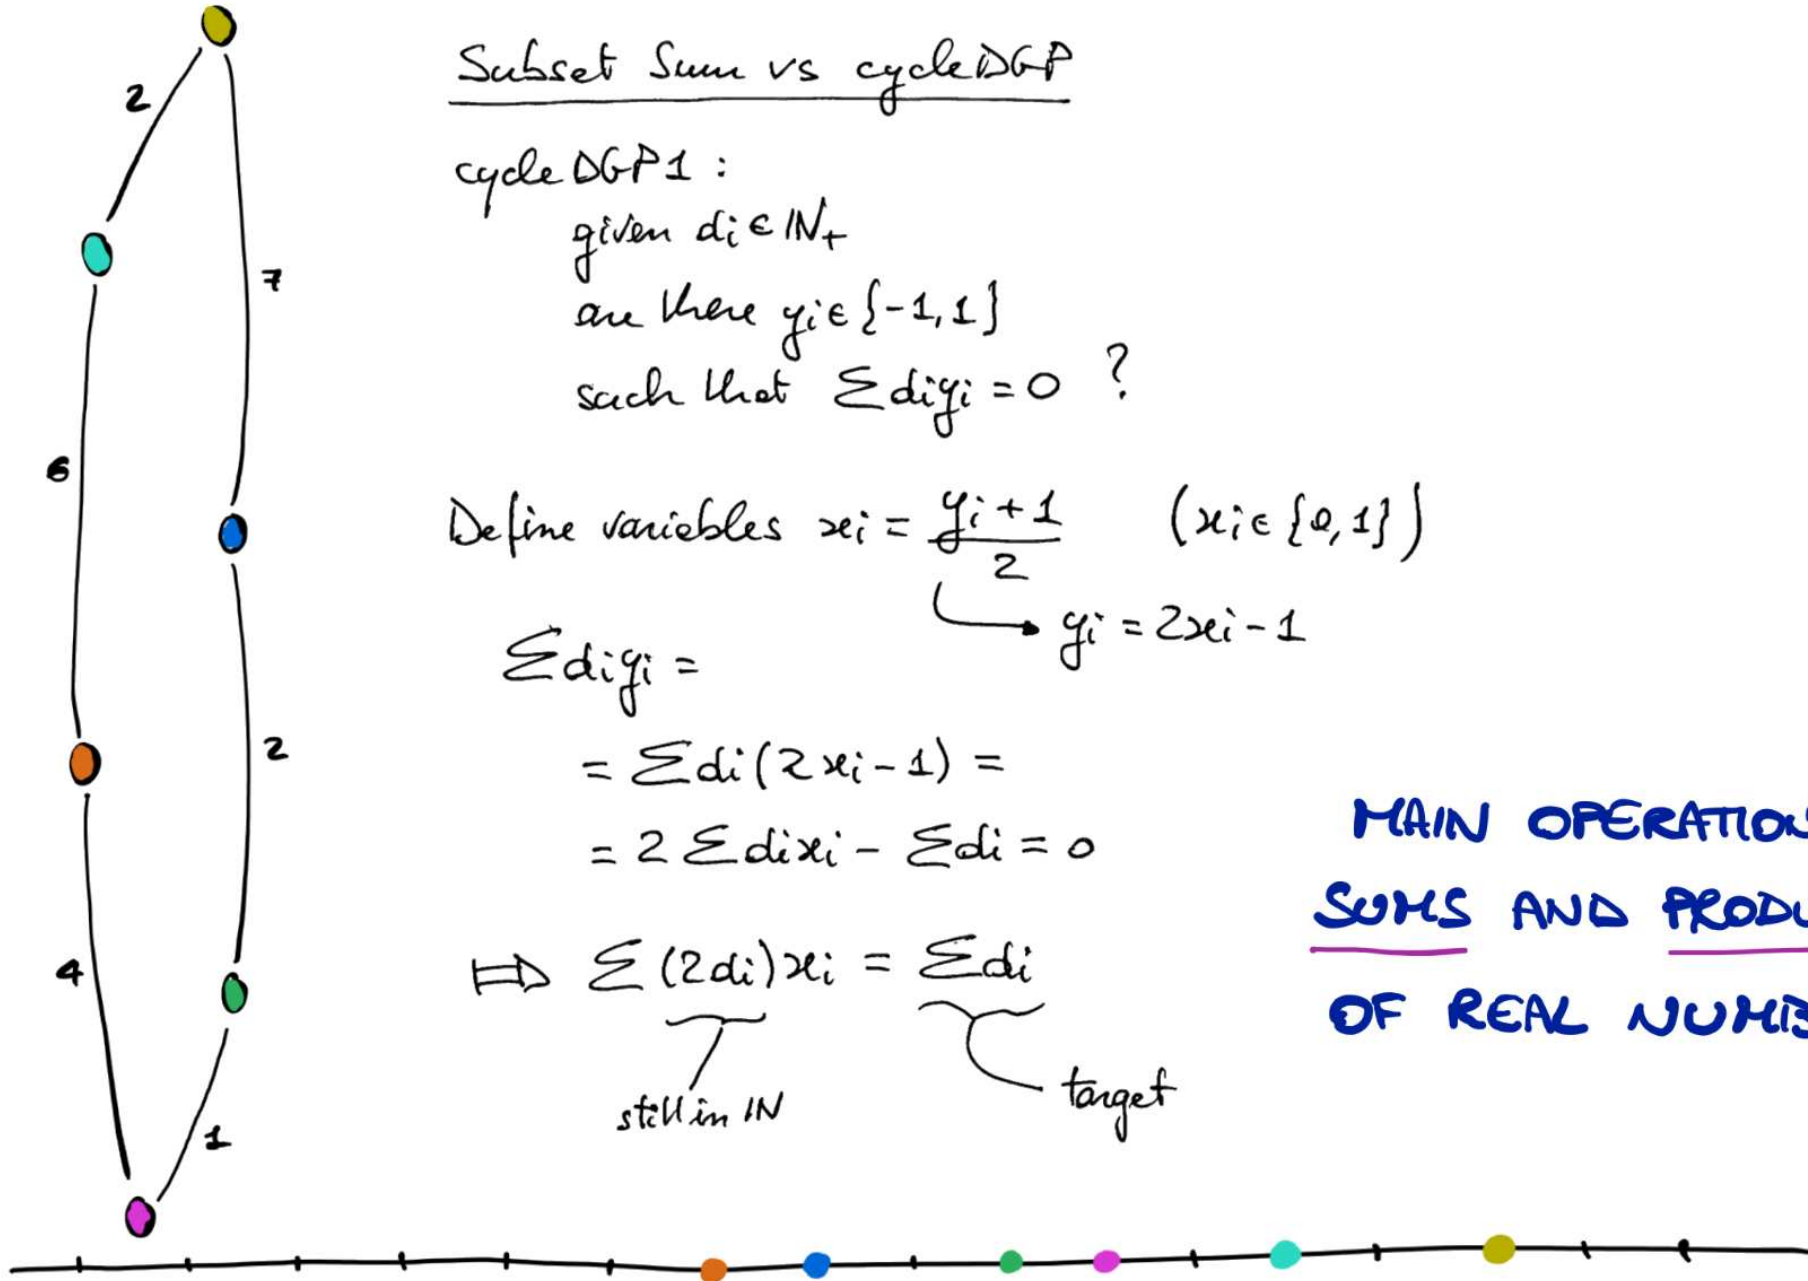 Subset Sum vs cycleDGP
cycleDGP1 :
given di ∈ IN+
are there yi ∈ {-1, 1}
such that Σ diyi = 0 ?
Define variables xi = (yi + 1)/2 (xi ∈ {0, 1})
yi = 2xi - 1
Σ diyi =
= Σ di(2xi - 1) =
= 2 Σ dixi - Σ di = 0
⟹ Σ (2di)xi = Σ di
still in IN
target
MAIN OPERATION
SUMS AND PRODU
OF REAL NUMB
2
7
6
2
4
1